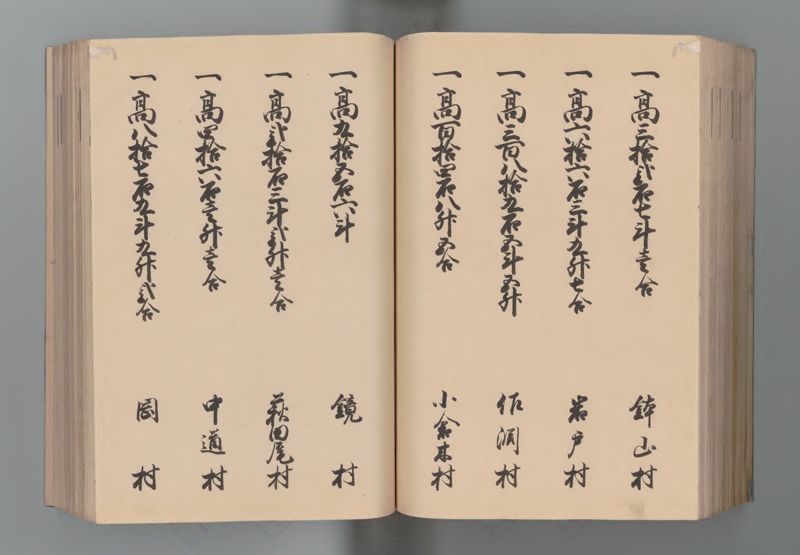 一高三拾弐石七斗壱合 鉢山村
一高六拾六石三斗九升七合 岩戸村
一高三百八拾九石五斗五升 佐渕村
一高百拾四石八升五合 小倉木村
一高九拾五石六斗 鏡村
一高弐拾石三斗弐升壱合 萩田尾村
一高四拾六石壱升壱合 中通村
一高八拾七石九斗九升弐合 岡村